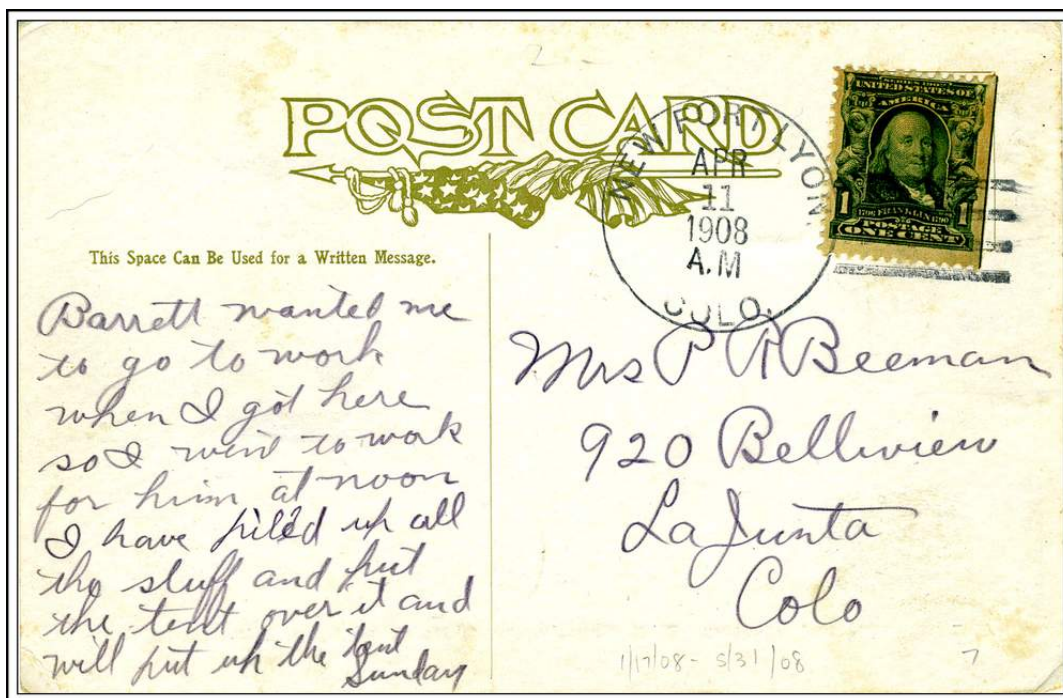 POST CARD
NEW FORT LYON
APR
11
1908
A.M
COLO.
SERIES 1902
UNITED STATES OF
AMERICA
1 1
1706 FRANKLIN 1790
POSTAGE
ONE CENT
This Space Can Be Used for a Written Message.
Barrett wanted me
to go to work
when I got here
so I went to work
for him at noon
I have piled up all
the stuff and put
the tent over it and
will put up the tent
Sunday
Mrs P R Beeman
920 Belleview
La Junta
Colo
1/17/08 - 5/31/08
7
2